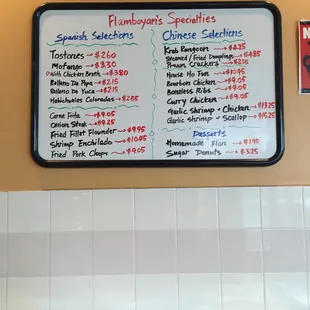 Flamboyan's Specialties
Spanish Selections
Tostones → $2.60
Mofongo → $3.30
With Chicken Broth → $3.80
Relleno De Papa → $2.15
Relleno De Yuca → $2.15
Habichuelas Coloradas → $2.85
Carne Frita → $9.05
Onion Steak → $9.25
Fried Fillet Flounder → $9.95
Shrimp Enchilado → $10.95
Fried Pork Chops → $9.05
Chinese Selections
Krab Rangoon → $4.25
Steamed / Fried Dumplings → $4.85
Prawn Crackers → $2.15
House Ho Fun → $10.95
Bourbon Chicken → $9.05
Boneless Ribs → $9.05
Curry Chicken → $9.05
Garlic Shrimp + Chicken → $13.25
Garlic Shrimp + Scallop → $15.25
Desserts
Homemade Flan → $2.95
Sugar Donuts → $3.25